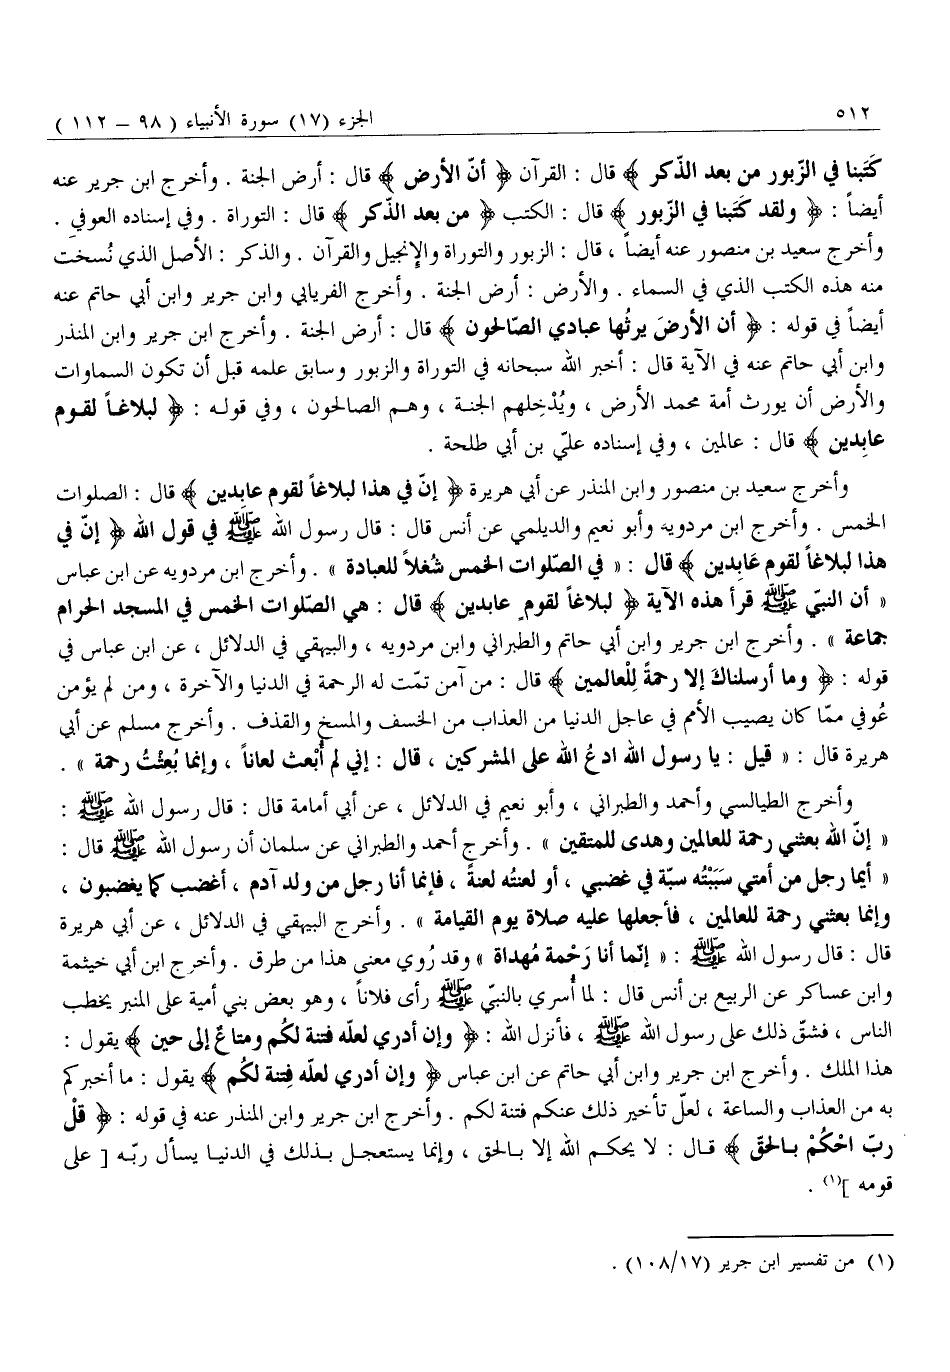 ٥١٢
الجزء (١٧) سورة الأنبياء ( ٩٨ – ١١٢ )
كَتَبنا في الزّبور من بعد الذّكر ﴾ قال : القرآن ﴿ أنّ الأرض ﴾ قال : أرض الجنة . وأخرج ابن جرير عنه
أيضاً : ﴿ ولقد كَتَبنا في الزّبور ﴾ قال : الكتب ﴿ من بعد الذّكر ﴾ قال : التوراة . وفي إسناده العوفي .
وأخرج سعيد بن منصور عنه أيضاً ، قال : الزبور والتوراة والإنجيل والقرآن . والذكر : الأصل الذي نُسخت
منه هذه الكتب الذي في السماء . والأرض : أرض الجنة . وأخرج الفريابي وابن جرير وابن أبي حاتم عنه
أيضاً في قوله : ﴿ أن الأرضَ يرثُها عبادي الصّالحون ﴾ قال : أرض الجنة . وأخرج ابن جرير وابن المنذر
وابن أبي حاتم عنه في الآية قال : أخبر الله سبحانه في التوراة والزبور وسابق علمه قبل أن تكون السماوات
والأرض أن يورث أمة محمد الأرض ، ويُدْخِلهم الجنة ، وهم الصالحون ، وفي قوله : ﴿ لبلاغاً لقوم
عابِدين ﴾ قال : عالمين ، وفي إسناده عليّ بن أبي طلحة .
وأخرج سعيد بن منصور وابن المنذر عن أبي هريرة ﴿ إنّ في هذا لبلاغاً لقوم عابِدين ﴾ قال : الصلوات
الخمس . وأخرج ابن مردويه وأبو نعيم والديلمي عن أنس قال : قال رسول الله ﷺ في قول الله ﴿ إنّ في
هذا لبلاغاً لقوم عَابِدين ﴾ قال : « في الصّلوات الخمس شُغلاً للعبادة » . وأخرج ابن مردويه عن ابن عباس
« أن النبيّ ﷺ قرأ هذه الآية ﴿ لبلاغاً لقومٍ عابدين ﴾ قال : هي الصّلوات الخمس في المسجد الحرام
جماعة » . وأخرج ابن جرير وابن أبي حاتم والطبراني وابن مردويه ، والبيهقي في الدلائل ، عن ابن عباس في
قوله : ﴿ وما أرسلناكَ إلا رحمةً لِلْعالمين ﴾ قال : من آمن تمّت له الرحمة في الدنيا والآخرة ، ومن لم يؤمن
عُوفي ممّا كان يصيب الأمم في عاجل الدنيا من العذاب من الخسف والمسخ والقذف . وأخرج مسلم عن أبي
هريرة قال : « قيل : يا رسول الله ادعُ الله على المشركين ، قال : إني لم أُبْعث لعاناً ، وإنما بُعِثْتُ رحمة » .
وأخرج الطيالسي وأحمد والطبراني ، وأبو نعيم في الدلائل ، عن أبي أمامة قال : قال رسول الله ﷺ :
« إنّ الله بعثني رحمة للعالمين وهدى للمتقين » . وأخرج أحمد والطبراني عن سلمان أن رسول الله ﷺ قال :
« أيما رجل من أمتي سَبَبْتُه سبّة في غضبي ، أو لعنتُه لعنةً ، فإنما أنا رجل من ولد آدم ، أغضب كما يغضبون ،
وإنما بعثني رحمة للعالمين ، فأجعلها عليه صلاة يوم القيامة » . وأخرج البيهقي في الدلائل ، عن أبي هريرة
قال : قال رسول الله ﷺ : « إنّما أنا رَحْمة مُهداة » وقد رُوي معنى هذا من طرق . وأخرج ابن أبي خيثمة
وابن عساكر عن الربيع بن أنس قال : لما أُسري بالنبيّ ﷺ رأى فلاناً ، وهو بعض بني أمية على المنبر يخطب
الناس ، فشقّ ذلك على رسول الله ﷺ ، فأنزل الله : ﴿ وإن أدري لعلّه فتنة لكُم ومتاعٌ إلى حين ﴾ يقول :
هذا الملك . وأخرج ابن جرير وابن أبي حاتم عن ابن عباس ﴿ وإن أدري لعلّه فِتنة لكُم ﴾ يقول : ما أخبركم
به من العذاب والساعة ، لعلّ تأخير ذلك عنكم فتنة لكم . وأخرج ابن جرير وابن المنذر عنه في قوله : ﴿ قلْ
ربّ احْكُمْ بالحقّ ﴾ قال : لا يحكم الله إلا بالحق ، وإنما يستعجل بذلك في الدنيا يسأل ربّه [ على
قومه ](١) .
(١) من تفسير ابن جرير (١٠٨/١٧) .